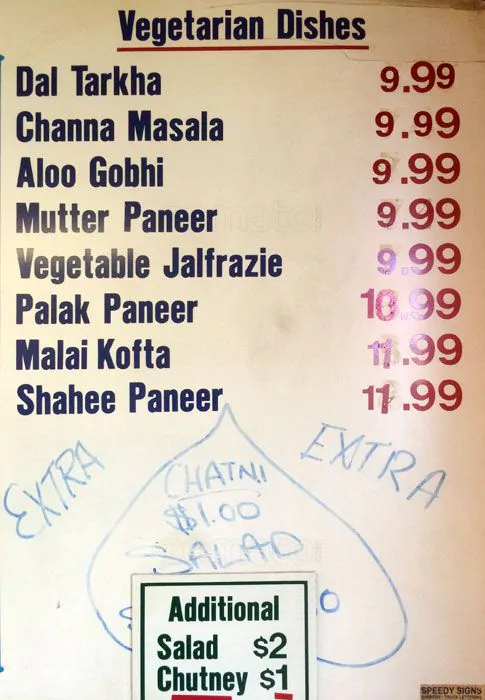 Vegetarian Dishes
Dal Tarkha 9.99
Channa Masala 9.99
Aloo Gobhi 9.99
Mutter Paneer 9.99
Vegetable Jalfrazie 9.99
Palak Paneer 10.99
Malai Kofta 11.99
Shahee Paneer 11.99
EXTRA EXTRA
CHATNI
$1.00
SALAD
Additional
Salad $2
Chutney $1
SPEEDY SIGNS